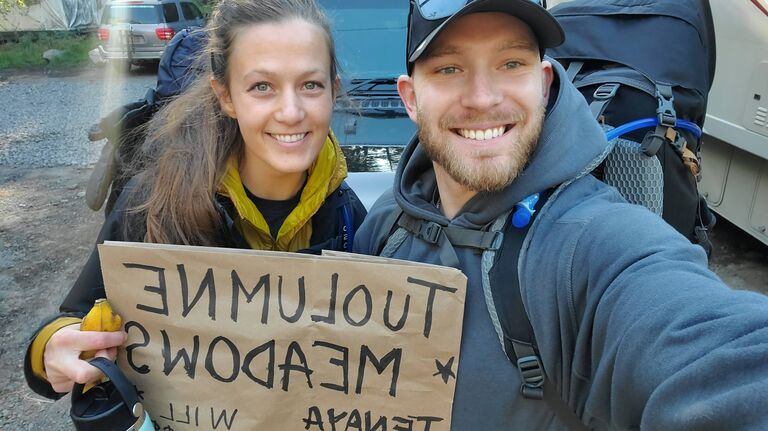 TUOLUMNE
* MEADOWS
TENAYA WILL